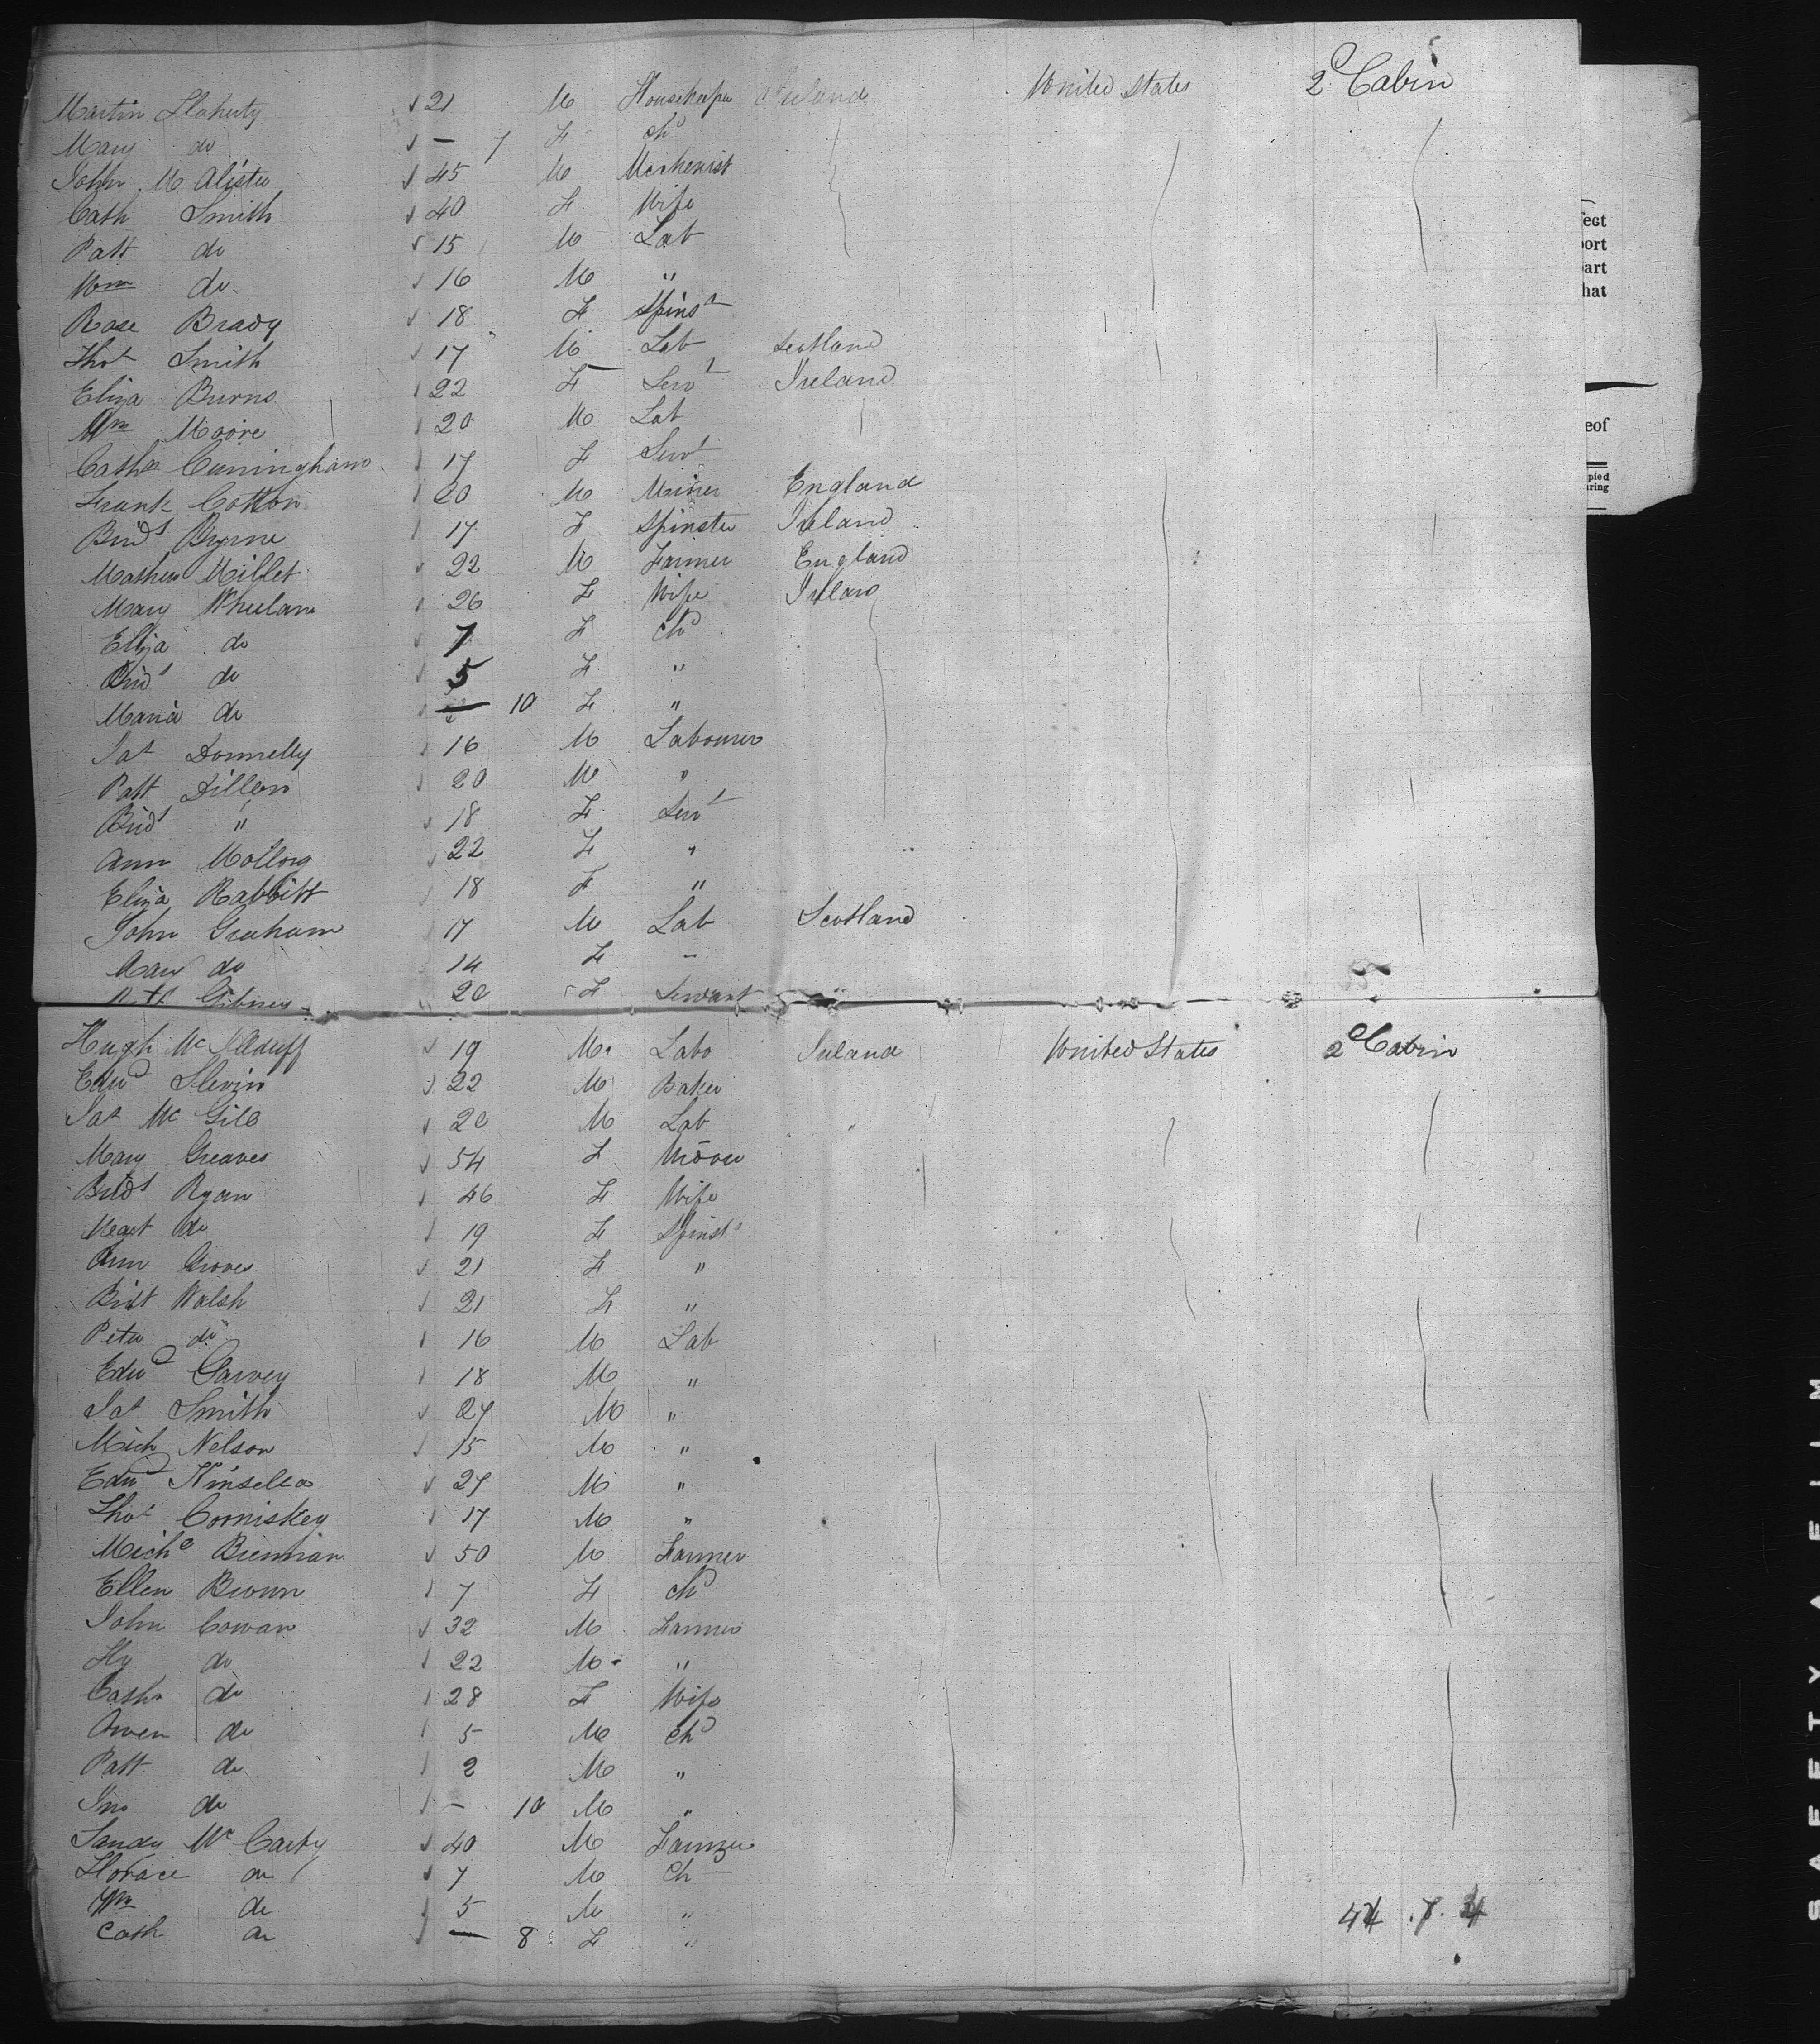 Martin Flaherty 21 M Housekeeper Ireland United States 2d Cabin
Mary do — 7 F chd
John McAlister 45 M Mechenist
Cath Smith 40 F Wife
Patt do 15 M Lab
Wm do 16 M "
Rose Brady 18 F Spinst
Thos Smith 17 M Lab Scotland
Eliza Burns 22 F Servt Ireland
Wm Moore 20 M Lab
Cathe Cuningham 17 F Servt
Frank Cotton 20 M Miner England
Bridt Byrne 17 F Spinster Ireland
Mathew Millet 22 M Farmer England
Mary Wheelan 26 F Wife Ireland
Eliza do 7 F chd
Bridt do 5 F "
Maria do — 10 F "
Jas Donnelly 16 M Labourer
Patt Dillon 20 M "
Bridt " 18 F Servt
Ann Molloy 22 F "
Eliza Rabbitt 18 F "
John Graham 17 M Lab Scotland
Mary do 14 F "
Gibney 20 F Servant "
Hugh Mc Ilduff 19 M Labo Ireland United States 2d Cabin
Edwd Slevin 22 M Baker
Jas Mc Gill 20 M Lab
Mary Greaves 54 F Widow
Bridt Ryan 46 F Wife
Margt do 19 F Spinst
Ann Groves 21 F "
Bidt Walsh 21 F "
Peter do 16 M Lab
Edwd Garvey 18 M "
Jas Smith 27 M "
Mich Nelson 15 M "
Edwd Kinsella 27 M "
Thos Comiskey 17 M "
Michl Brennan 50 M Farmer
Ellen Brown 7 F chd
John Cowan 32 M Farmer
Hy do 22 M "
Cath do 28 F Wife
Owen do 5 M chd
Patt do 2 M "
Jno do — 10 M "
Sandy Mc Carty 40 M Farmer
Horace do 7 M Ch
Wm do 5 M "
Cath do — 8 F "
fect
port
part
hat
eof
pied
uring
SAFETY FILM